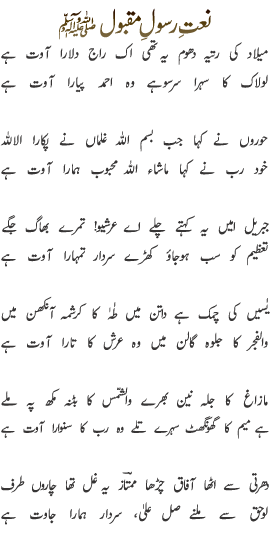 نعتِ رسولِ مقبول ﷺ
میلاد کی رتیہ دھوم یہ تھی اک راج دلارا آوت ہے
لولاک کا سہرا سرسوہے وہ احمد پیارا آوت ہے
حوروں نے کہا جب بسم اللہ غلماں نے پکارا الااللہ
خود رب نے کہا ماشاء اللہ محبوب ہمارا آوت ہے
جبریل امیں یہ کہتے چلے اے عرشیو! تمرے بھاگ جگے
تعظیم کو سب ہوجاؤ کھڑے سردار تمہارا آوت ہے
یٰسیں کی چمک ہے داتن میں طٰہٰ کا کرشمہ آنکھن میں
والفجر کا جلوہ گالن میں وہ عرش کا تارا آوت ہے
مازاغ کا جلہ نین بھرے والشمس کا بٹنہ مکھ پہ ملے
ہے میم کا گھونگھٹ سہرے تلے وہ رب کا سنوارا آوت ہے
دھرتی سے اٹھا آفاق چڑھا ممتازؔ یہ غل تھا چاروں طرف
لوحق سے ملنے صل علیٰ، سردار ہمارا جاوت ہے